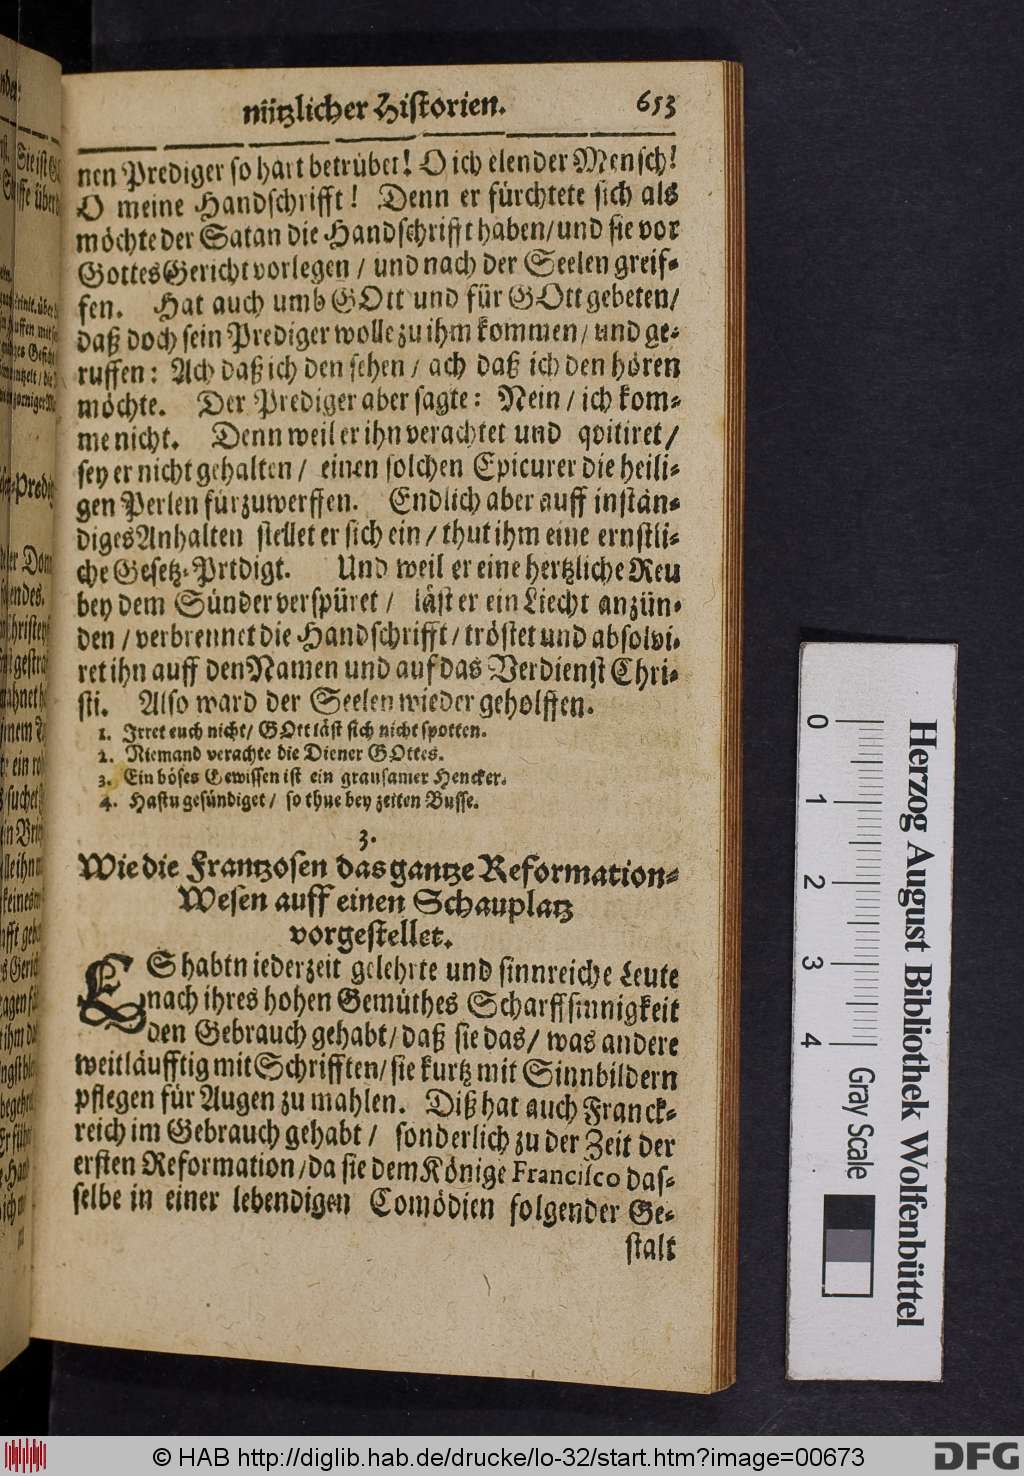 nützlicher Historien. 653
nen Prediger so hart betrübet! O ich elender Mensch!
O meine Handschrifft! Denn er fürchtete sich als
möchte der Satan die Handschrifft haben/ und sie vor
Gottes Gericht vorlegen / und nach der Seelen greif-
fen. Hat auch umb GOtt und für GOtt gebeten/
daß doch sein Prediger wolle zu ihm kommen/ und ge-
ruffen: Ach daß ich den sehen / ach daß ich den hören
möchte. Der Prediger aber sagte: Nein / ich kom-
me nicht. Denn weil er ihn verachtet und qvitiret/
sey er nicht gehalten / einen solchen Epicurer die heili-
gen Perlen fürzuwerffen. Endlich aber auff instän-
diges Anhalten stellet er sich ein / thut ihm eine ernstli-
che Gesetz-Prtdigt. Und weil er eine hertzliche Reu
bey dem Sünder verspüret / läst er ein Liecht anzün-
den / verbrennet die Handschrifft / tröstet und absolvi-
ret ihn auff den Namen und auf das Verdienst Chri-
sti. Also ward der Seelen wieder geholffen.
1. Irret euch nicht/ GOtt läst sich nicht spotten.
2. Niemand verachte die Diener GOttes.
3. Ein böses Gewissen ist ein grausamer Hencker.
4. Hastu gesündiget / so thue bey zeiten Busse.
3.
Wie die Frantzosen das gantze Reformation-
Wesen auff einen Schauplatz
vorgestellet.
ES habtn iederzeit gelehrte und sinnreiche Leute
nach ihres hohen Gemüthes Scharffsinnigkeit
den Gebrauch gehabt/ daß sie das/ was andere
weitläufftig mit Schrifften/ sie kurtz mit Sinnbildern
pflegen für Augen zu mahlen. Diß hat auch Franck-
reich im Gebrauch gehabt / sonderlich zu der Zeit der
ersten Reformation/ da sie dem Könige Francisco das-
selbe in einer lebendigen Comödien folgender Ge-
stalt
0 1 2 3 4
Herzog August Bibliothek Wolfenbüttel
Gray Scale
© HAB http://diglib.hab.de/drucke/lo-32/start.htm?image=00673
DFG